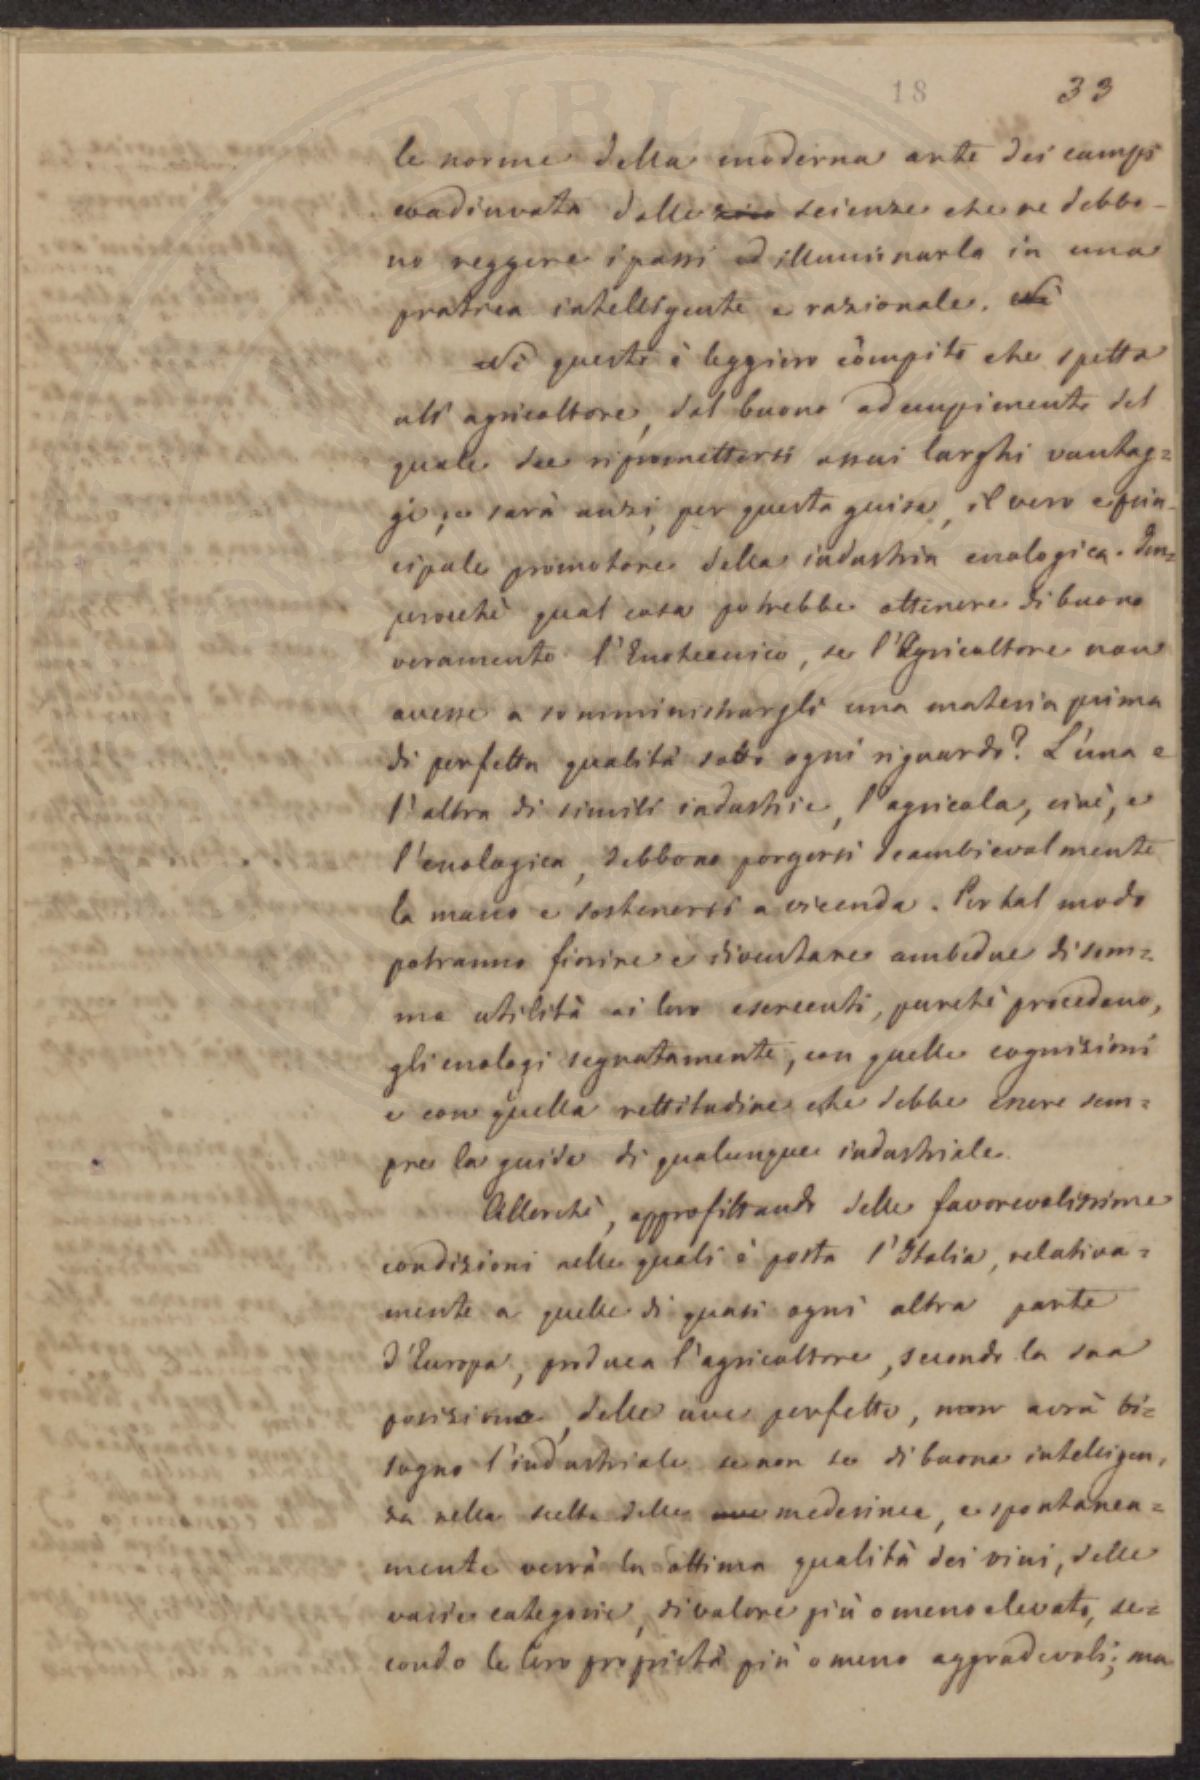 18 33
le norme della moderna arte dei campi
coadiuvata dalle scienze che ne debbo-
no reggere i passi ed illuminarla in una
pratica intelligente e razionale. Nè
Nè questo è leggiero còmpito che spetta
all'agricoltore, dal buono adempimento del
quale dee ripromettersi assai larghi vantag=
gi, e sarà anzi, per questa guisa, il vero e prin-
cipale promotore della industria enologica. Im=
perocchè qual cosa potrebbe ottenere di buono
veramente l'Enotecnico, se l'Agricoltore non
avesse a somministrargli una materia prima
di perfetta qualità sotto ogni riguardo? L'una e
l'altra di simili industrie, l'agricola, cioè, e
l'enologica, debbono porgersi scambievolmente
la mano e sostenersi a vicenda. Per tal modo
potranno fiorire e diventare ambedue di som=
ma utilità ai loro esercenti, purchè procedano,
gli enologi segnatamente, con quelle cognizioni
e con quella rettitudine che debbe essere sem=
pre la guida di qualunque industriale.
Allorchè, approfittando delle favorevolissime
condizioni nelle quali è posta l'Italia, relativa=
mente a quelle di quasi ogni altra parte
d'Europa, produca l'agricoltore, secondo la sua
posizione, delle uve perfette, non avrà bi=
sogno l'industriale se non se di buona intelligen,
za nella scelta delle uve medesime, e spontanea=
mente verrà la ottima qualità dei vini, delle
varie categorie, di valore più o meno elevato, se=
condo le loro proprietà più o meno aggradevoli; ma